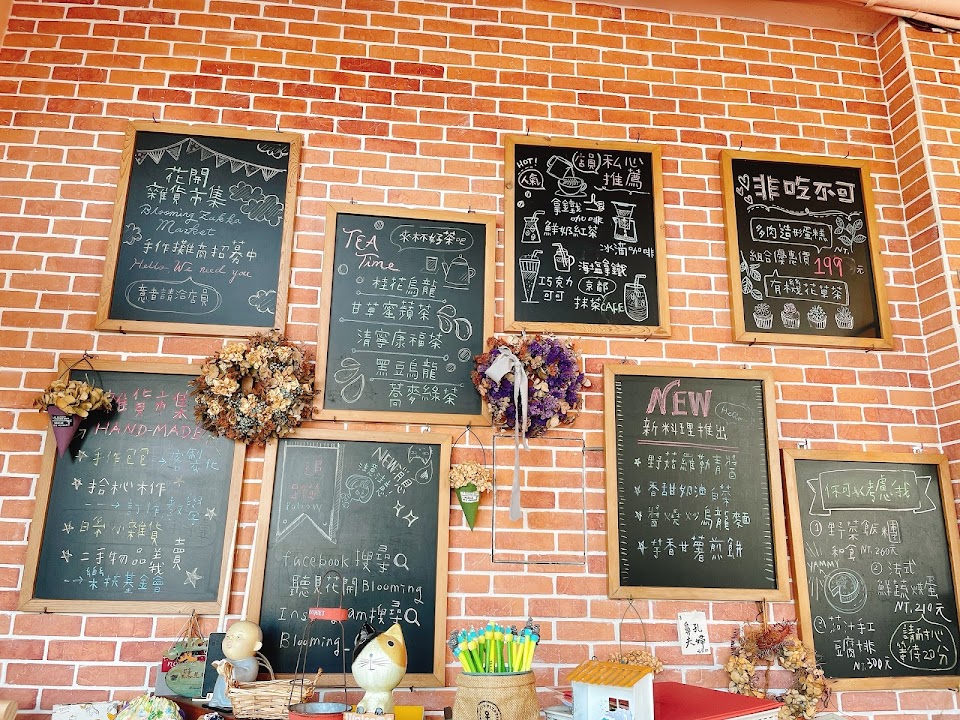 花開
雜貨市集
Blooming Zakka
Market
手作攤商招募中
Hello We need you
意者請洽店員
TEA
Time
來杯好茶吧
桂花烏龍
甘草蜜蘋茶
清寧康福茶
黑豆烏龍
蕎麥綠茶
HOT!
人氣
店員私心
推薦
拿鐵咖啡
鮮奶紅茶
冰滴咖啡
海塩拿鐵
巧克力
可可
京都
抹茶CAFE
非吃不可
多肉造形蛋糕
組合優惠價 NT.199元
有機花草茶
雜貨市集
HAND-MADE
手作包包
拾心木作
日系小雜貨
二手物品義賣
基金會
NEW消息
facebook搜尋
聽見花開Blooming
Instagram搜尋
Blooming_
NEW
Hello
新料理推出
野菇羅勒青醬
香甜奶油白菜
醬燒炒烏龍麵
芋香甘薯煎餅
你可以考慮我
① 野菜飯糰
和食 NT.260元
YUMMY
② 法式
鮮蔬燉蛋
NT.210元
③ 茄汁手工
豆腐排
NT.300元
請耐心
等待20分